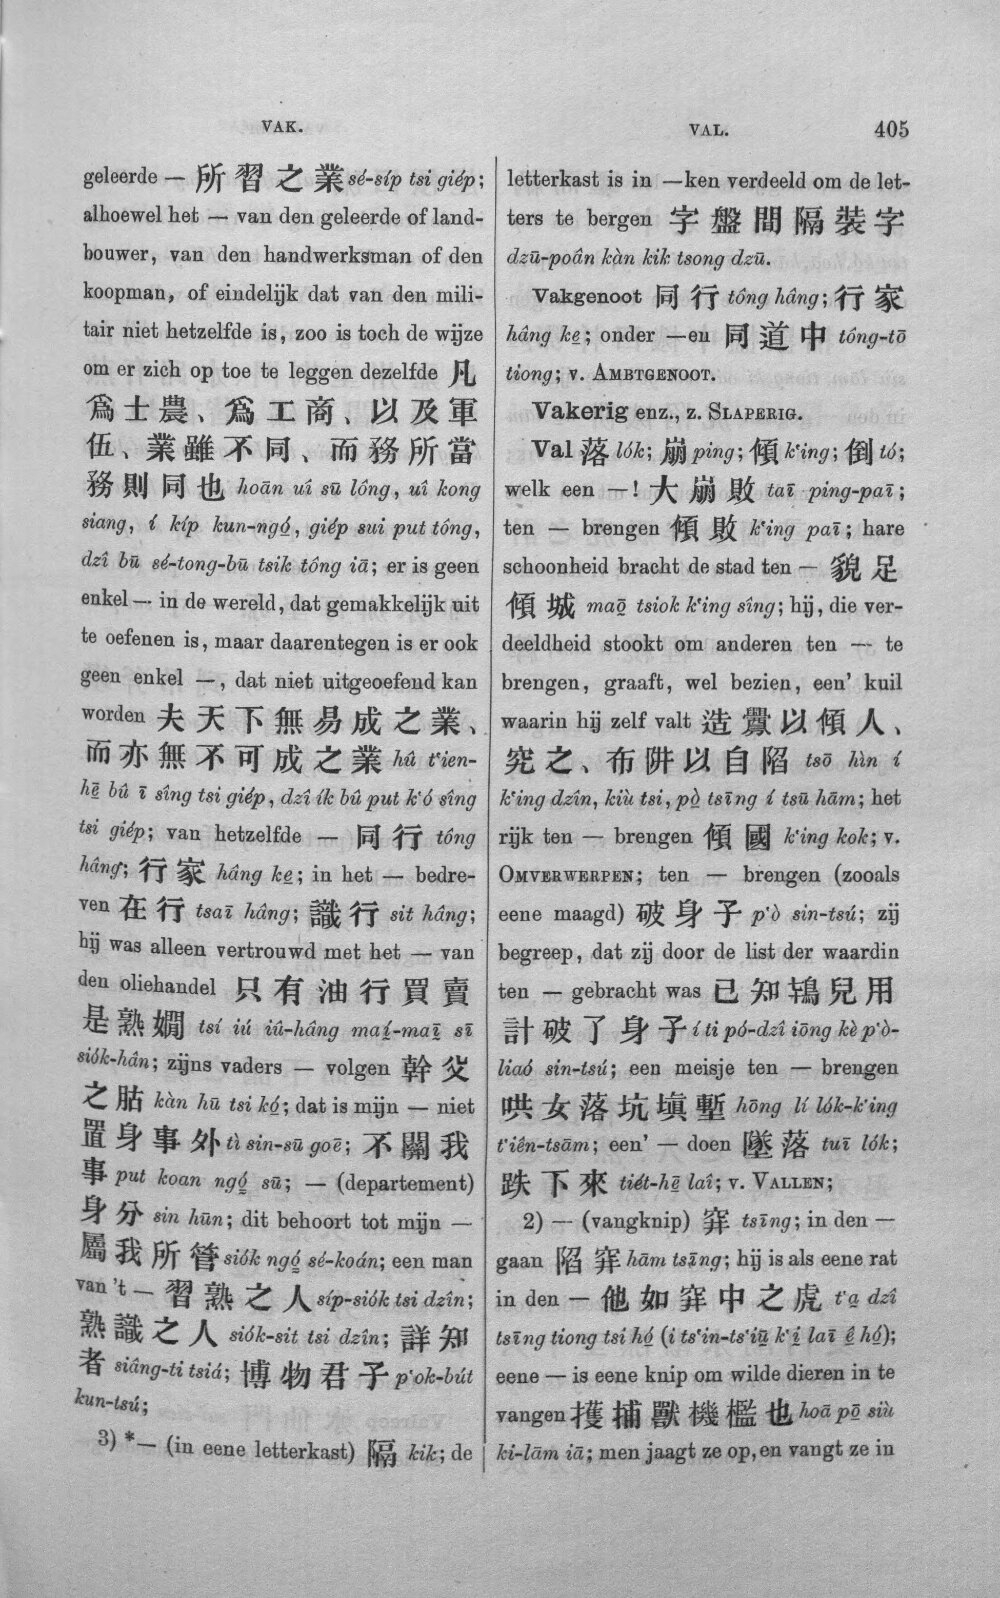 VAK.
geleerde — 所習之業 sé-síp tsi giép;
alhoewel het — van den geleerde of land-
bouwer, van den handwerksman of den
koopman, of eindelijk dat van den mili-
tair niet hetzelfde is, zoo is toch de wijze
om er zich op toe te leggen dezelfde 凡
爲士農、爲工商、以及軍
伍、業雖不同、而務所當
務則同也 hoān uî sū lông, uî kong
siang, í kíp kun-ngó̤, giép sui put tông,
dzî bū sé-tong-bū tsik tông iā; er is geen
enkel — in de wereld, dat gemakkelijk uit
te oefenen is, maar daarentegen is er ook
geen enkel —, dat niet uitgeoefend kan
worden 夫天下無易成之業、
而亦無不可成之業 hû t‘ien-
hē̤ bû ī sîng tsi giép, dzî ík bû put k‘ó sîng
tsi giép; van hetzelfde — 同行 tông
hâng; 行家 hâng ke̤; in het — bedre-
ven 在行 tsaī hâng; 識行 sit hâng;
hij was alleen vertrouwd met het — van
den oliehandel 只有油行買賣
是熟嫺 tsí iú iû-hâng maí̤-maī̤ sī
siók-hân; zijns vaders — volgen 幹父
之詁 kàn hū tsi kó̤; dat is mijn — niet
置身事外 tì sin-sū goē; 不關我
事 put koan ngó̤ sū; — (departement)
身分 sin hūn; dit behoort tot mijn —
屬我所管 siók ngó̤ sé-koán; een man
van 't — 習熟之人 síp-siók tsi dzîn;
熟識之人 siók-sit tsi dzîn; 詳知
者 siâng-ti tsiá; 博物君子 p‘ok-bút
kun-tsú;
3) *— (in eene letterkast) 隔 kik; de
VAL.
405
letterkast is in —ken verdeeld om de let-
ters te bergen 字盤間隔裝字
dzū-poân kàn kik tsong dzū.
Vakgenoot 同行 tông hâng; 行家
hâng ke̤; onder —en 同道中 tóng-tō
tiong; v. AMBTGENOOT.
Vakerig enz., z. SLAPERIG.
Val 落 lók; 崩 ping; 傾 k‘ing; 倒 tó;
welk een —! 大崩敗 taī ping-paī;
ten — brengen 傾敗 k‘ing paī; hare
schoonheid bracht de stad ten — 貌足
傾城 maō̤ tsiok k‘ing sîng; hij, die ver-
deeldheid stookt om anderen ten — te
brengen, graaft, wel bezien, een' kuil
waarin hij zelf valt 造釁以傾人、
究之、布阱以自陷 tsō hìn í
k‘ing dzîn, kiù tsi, pò̤ tsīng í tsū hām; het
rijk ten — brengen 傾國 k‘ing kok; v.
OMVERWERPEN; ten — brengen (zooals
eene maagd) 破身子 p‘ò sin-tsú; zij
begreep, dat zij door de list der waardin
ten — gebracht was 已知鴇兒用
計破了身子 í ti pó-dzî iōng kè p‘ò-
liaó sin-tsú; een meisje ten — brengen
哄女落坑塡塹 hōng lí lók-k‘ing
t‘iên-tsām; een' — doen 墜落 tuī lók;
跌下來 tiét-hē̤ laî; v. VALLEN;
2) — (vangknip) 穽 tsīng; in den —
gaan 陷穽 hām tsīng; hij is als eene rat
in den — 他如穽中之虎 t‘a̤ dzî
tsīng tiong tsi hó̤ (i ts‘in-ts‘iṳ̄ k‘i̤ laī ê̤ hó̤);
eene — is eene knip om wilde dieren in te
vangen 擭捕獸機檻也 hoā pō̤ siù
ki-lām iā; men jaagt ze op, en vangt ze in